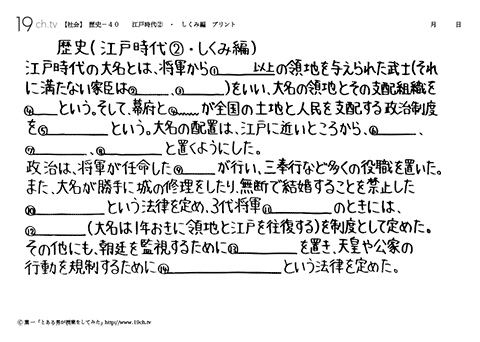 19ch.tv 【社会】 歴史－４０ 江戸時代② ・ しくみ編 プリント 月 日
歴史(江戸時代②・しくみ編)
江戸時代の大名とは、将軍から①＿＿＿＿以上の領地を与えられた武士(それ
に満たない家臣は②＿＿＿＿、③＿＿＿＿)をいい、大名の領地とその支配組織を
④＿＿＿という。そして、幕府と④＿＿＿が全国の土地と人民を支配する政治制度
を⑤＿＿＿＿という。大名の配置は、江戸に近いところから、⑥＿＿＿＿、
⑦＿＿＿＿、⑧＿＿＿＿と置くようにした。
政治は、将軍が任命した⑨＿＿＿＿が行い、三奉行など多くの役職を置いた。
また、大名が勝手に城の修理をしたり、無断で結婚することを禁止した
⑩＿＿＿＿という法律を定め、3代将軍⑪＿＿＿＿のときには、
⑫＿＿＿＿(大名は1年おきに領地と江戸を往復する)を制度として定めた。
その他にも、朝廷を監視するために⑬＿＿＿＿を置き、天皇や公家の
行動を規制するために⑭＿＿＿＿という法律を定めた。
©葉一「とある男が授業をしてみた」http://www.19ch.tv